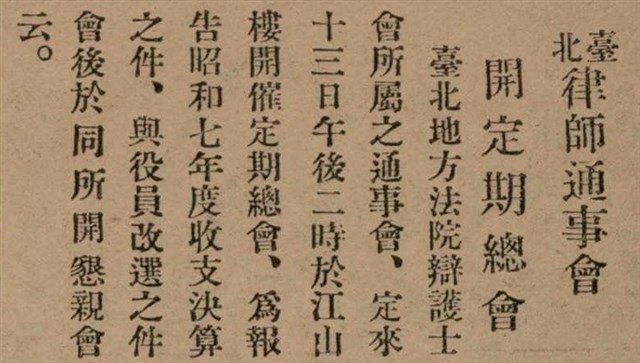 臺北律師通事會
開定期總會
臺北地方法院辯護士
會所屬之通事會、定來
十三日午後二時於江山
樓開催定期總會、爲報
告昭和七年度收支決算
之件、與役員改選之件
會後於同所開懇親會
云。